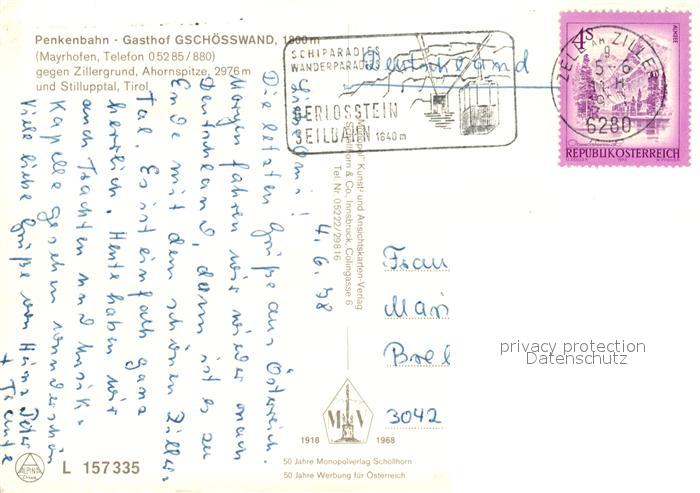 Penkenbahn - Gasthof GSCHÖSSWAND, 1800 m
(Mayrhofen, Telefon 0 52 85 / 880)
gegen Zillergrund, Ahornspitze, 2976 m
und Stillupptal, Tirol
SCHIPARADIES
WANDERPARADIES
GERLOSSTEIN
SEILBAHN 1640 m
Deutschland
ZELL AM ZILLER
6280
4S
ALMSEE
REPUBLIK ÖSTERREICH
4.6.98
Die letzten Grüße aus Österreich.
Morgen fahren wir wieder nach
Deutschland, dann ist es zu
Ende mit dem schönen Ziller-
tal. Es ist einfach ganz
herrlich. Heute haben wir
auch Trachten und Musik-
Kapelle gesehen wunderschön
Viele liebe Grüße von Heinz Peter
+ Taunte
"Monopol" Kunst- und Ansichtskarten-Verlag
Schöllhorn & Co., Innsbruck, Colingasse 6
Tel. Nr. 05222/29816
Frau
Mari
Brel
3042
privacy protection
Datenschutz
M V
1918 1968
50 Jahre Monopolverlag Schöllhorn
50 Jahre Werbung für Österreich
ALPINA
L 157335